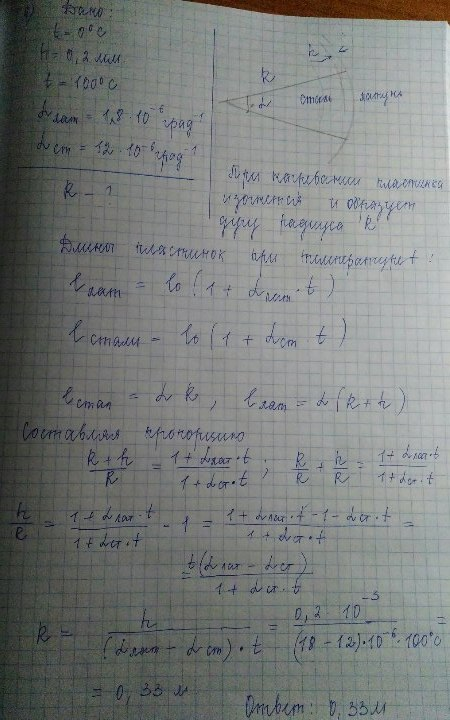 в) Дано:
t = 0°C
h = 0,2 мм
t = 100°C
α лат = 1,8 · 10⁻⁶ град⁻¹
α ст = 12 · 10⁻⁶ град⁻¹
R - ?
h
R
α
сталь
латунь
При нагревании пластинка
изогнется и образует
дугу радиуса R
Длины пластинок при температуре t :
l лат = l0 (1 + α лат · t)
l стали = l0 (1 + α ст t)
l стал = α R, l лат = α (R + h)
Составляя пропорцию
(R + h)/R = (1 + α лат · t)/(1 + α ст · t) ; R/R + h/R = (1 + α лат · t)/(1 + α ст · t)
h/R = (1 + α лат · t)/(1 + α ст · t) - 1 = (1 + α лат · t - 1 - α ст · t)/(1 + α ст · t) =
= t(α лат - α ст)/(1 + α ст · t)
R = h/((α лат - α ст) · t) = 0,2 · 10⁻³/((18 - 12) · 10⁻⁶ · 100°C) =
= 0,33 м
Ответ: 0,33 м